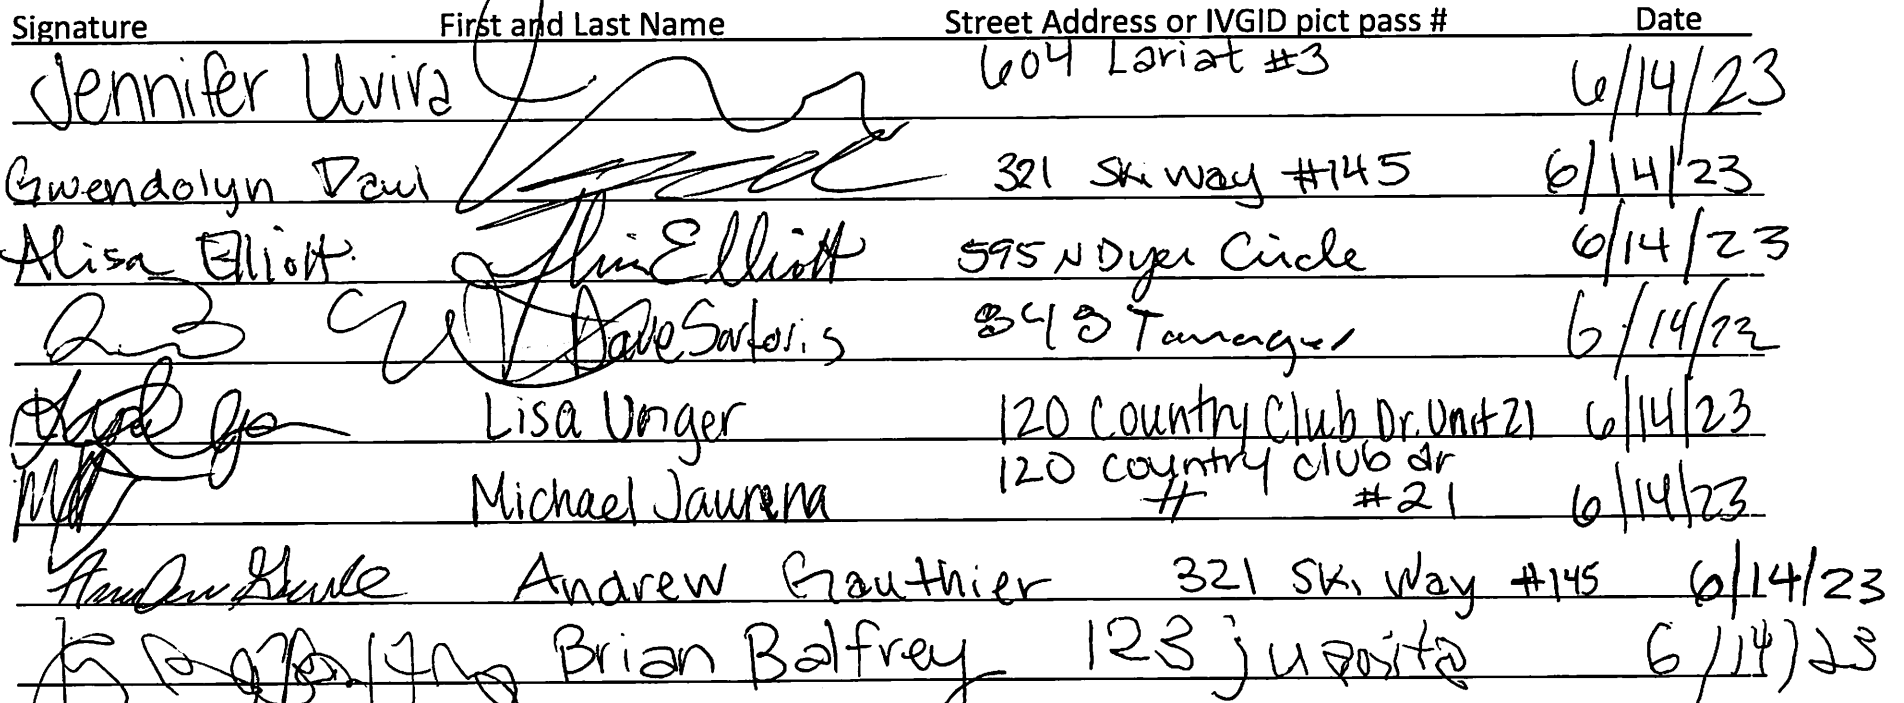 Signature First and Last Name Street Address or IVGID pict pass # Date
Jennifer Uvira 604 Lariat #3 6/14/23
Gwendolyn Daul 321 Ski way #145 6/14/23
Alisa Elliott Alisa Elliott 595 N Dyer Circle 6/14/23
Dave Sartoris 848 Tanager 6/14/23
Lisa Unger 120 Country Club Dr. Unit 21 6/14/23
Michael Jaurena 120 country club dr # #21 6/14/23
Andrew Gauthier 321 Ski Way #145 6/14/23
Brian Balfrey 123 6/14/23